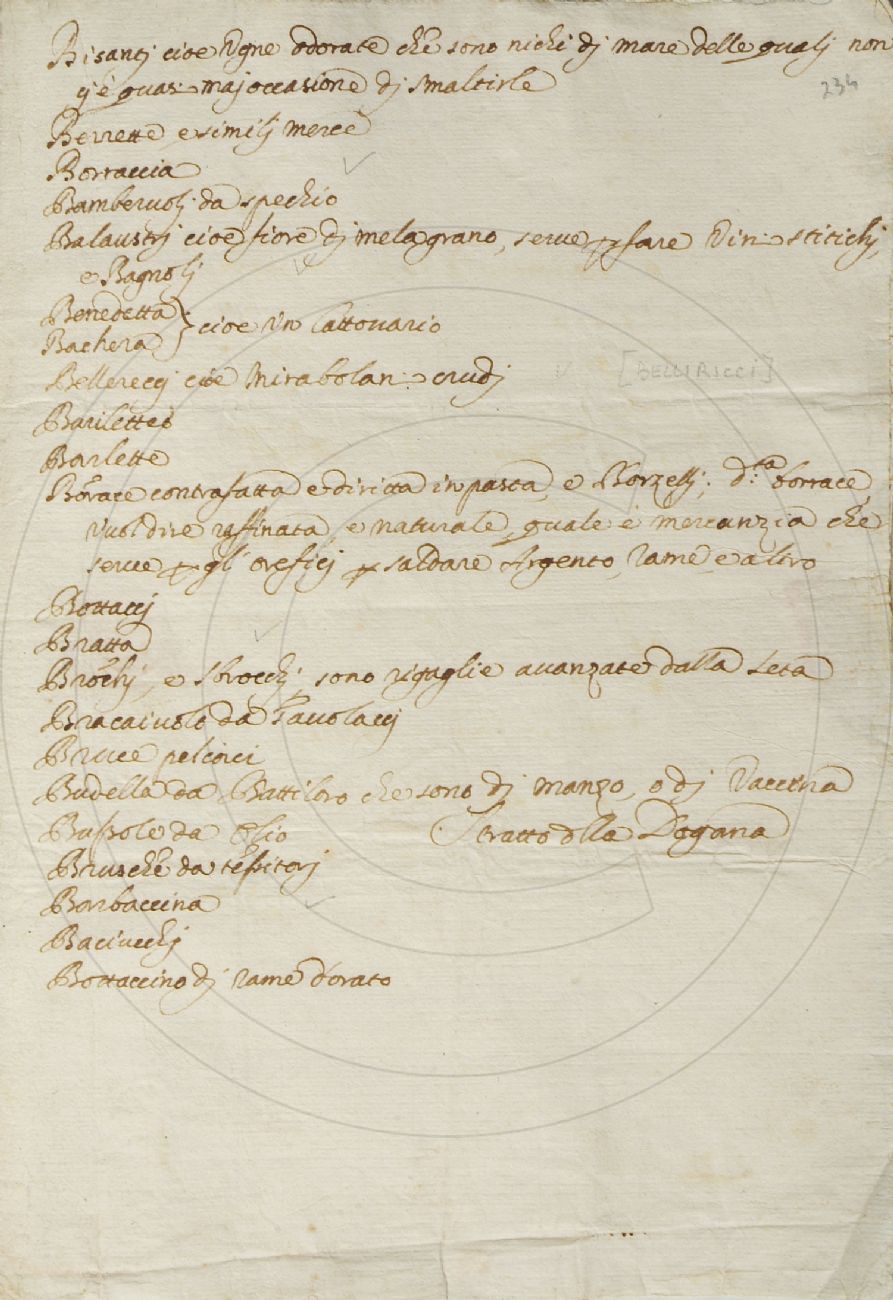 Bisantj cioè Vgne odorate che sono nichi dj mare delle qualj non
c'è quasi maj occasione dj smaltirle
234
Berrette e similj merce
Borraccia
Bambervolj da specchio
Balaustrj cioè fiore dj melagrano, serve p fare Vin: stitichj,
e Bagnolj
Benedetta } cioè un lattovario
Bachera
Bellereccj cioè Mirabolan: crudj [BELLIRICCI]
Barilette
Barlette
Borace contrafatta e diritta in pasta, e Borzellj, d:ta borrace
vuol dire raffinata, e naturale, quale è mercanzia che
serve p gl' oreficj p saldare Argento, rame, e altro
Bottaccj
Bratta
Brocchj, e sbrocchj, sono rigaglie avanzate dalla seta
Bracaivolo da Tavolaccj
Bruce pelcici
Budella da Battiloro che sono dj manzo, o dj Vaccina
Bussole da Olio Stratto dlla Dogana
Brusche da tessitorj
Barbaccina
Baciucchj
Bottaccino dj rame dorato